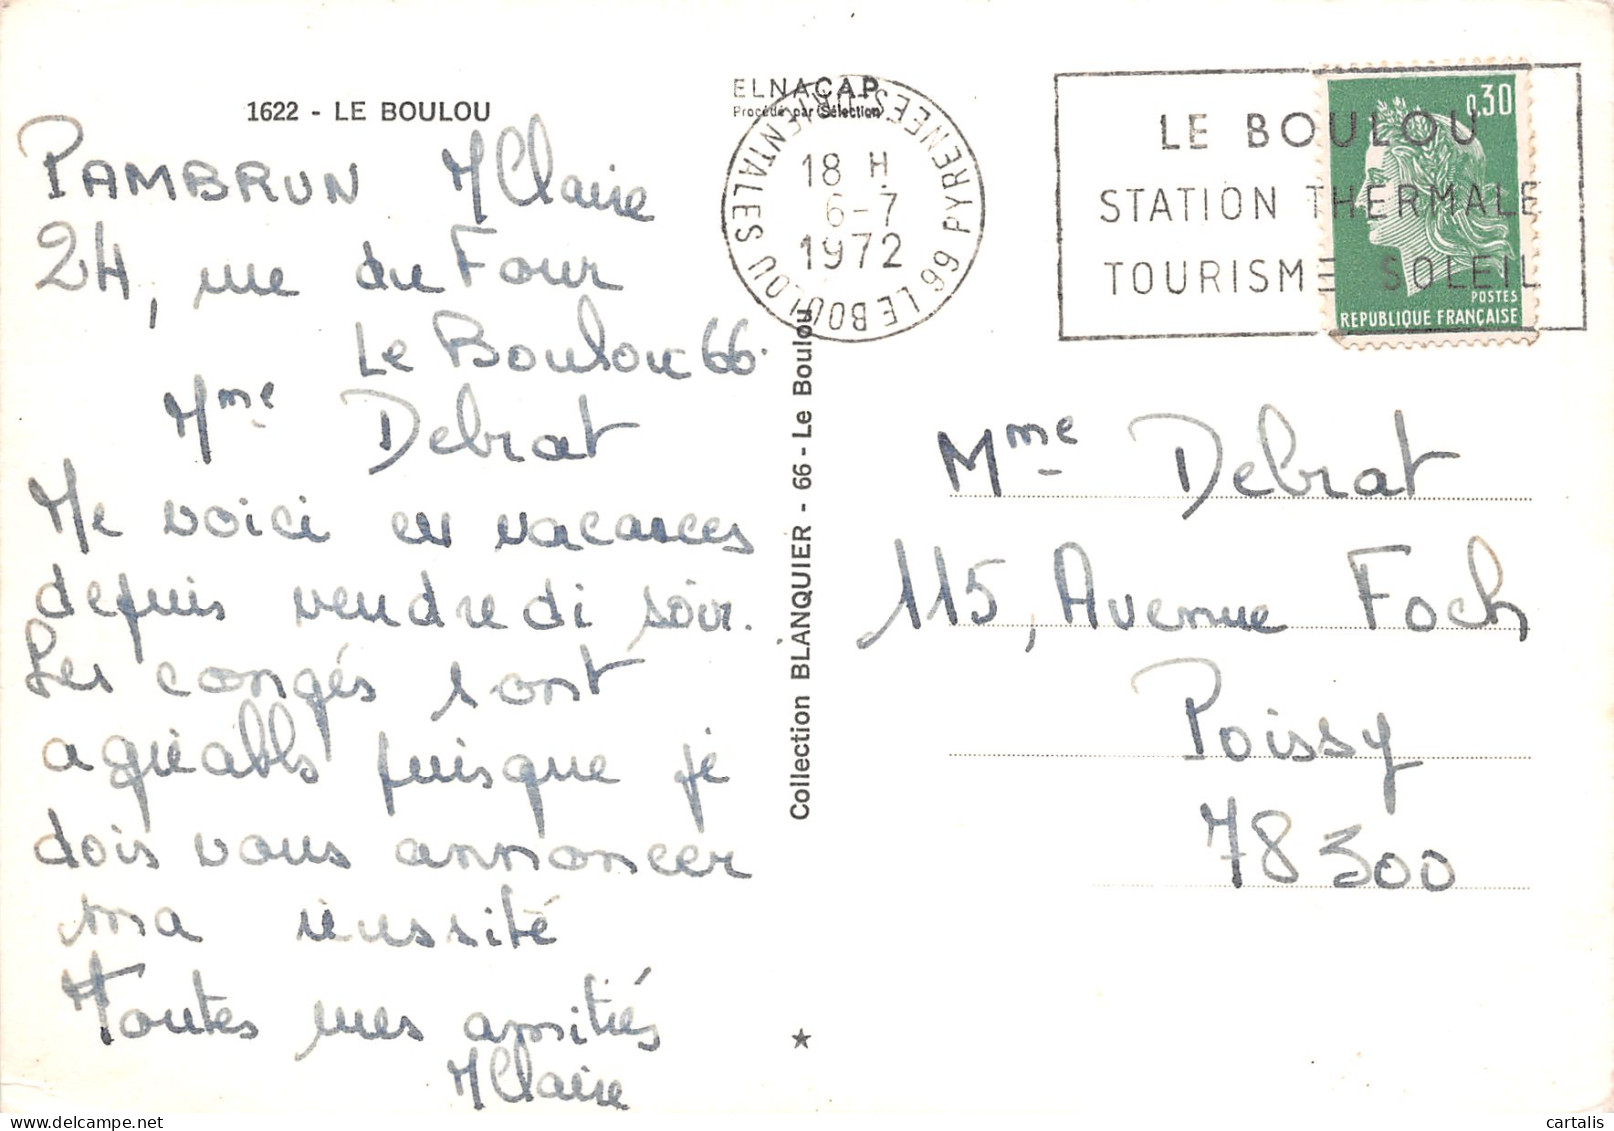 1622 - LE BOULOU
PAMBRUN M Claire
24, rue du Four
Le Boulou 66.
Mme Debrat
Me voici en vacances
depuis vendredi soir.
Les congés sont
agréables puisque je
dois vous annoncer
ma réussité
Toutes mes amitiés
M Claire
ELNACAP
Procédé par Sélection
66 LE BOULOU PYRENEES ORIENTALES
18 H
6-7
1972
LE BOULOU
STATION THERMALE
TOURISME SOLEIL
0,30
POSTES
REPUBLIQUE FRANÇAISE
Collection BLANQUIER - 66 - Le Boulou
Mme Debrat
115, Avenue Foch
Poissy
78300
cartalis
www.delcampe.net